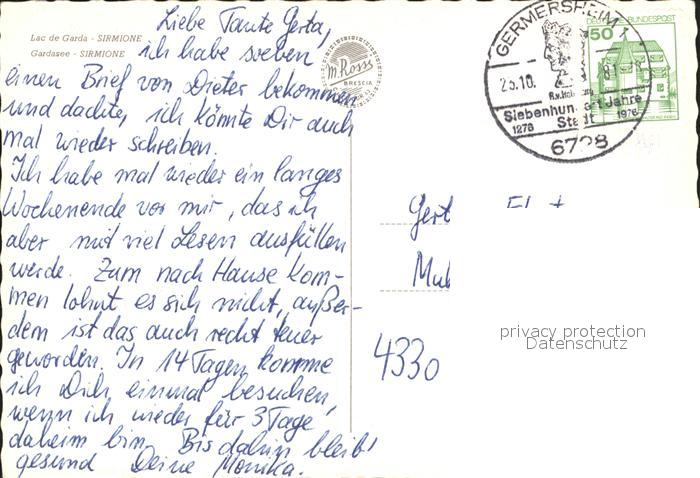 Lac de Garda - SIRMIONE
Gardasee - SIRMIONE
m.Ross
BRESCIA
Liebe Tante Gerta,
ich habe soeben
einen Brief von Dieter bekommen
und dachte, ich könnte Dir auch
mal wieder schreiben.
Ich habe mal wieder ein langes
Wochenende vor mir, das ich
aber mit viel Lesen ausfüllen
werde. Zum nach Hause kom-
men lohnt es sich nicht, außer-
dem ist das auch recht teuer
geworden. In 14 Tagen komme
ich Dich einmal besuchen,
wenn ich wieder für 3 Tage
daheim bin. Bis dahin bleib'
gesund Deine Monika.
GERMERSHEIM
25.10.
81
Siebenhundert Jahre
1276 Stadt 1976
6728
50
DEUTSCHE BUNDESPOST
Gert
4330
privacy protection
Datenschutz